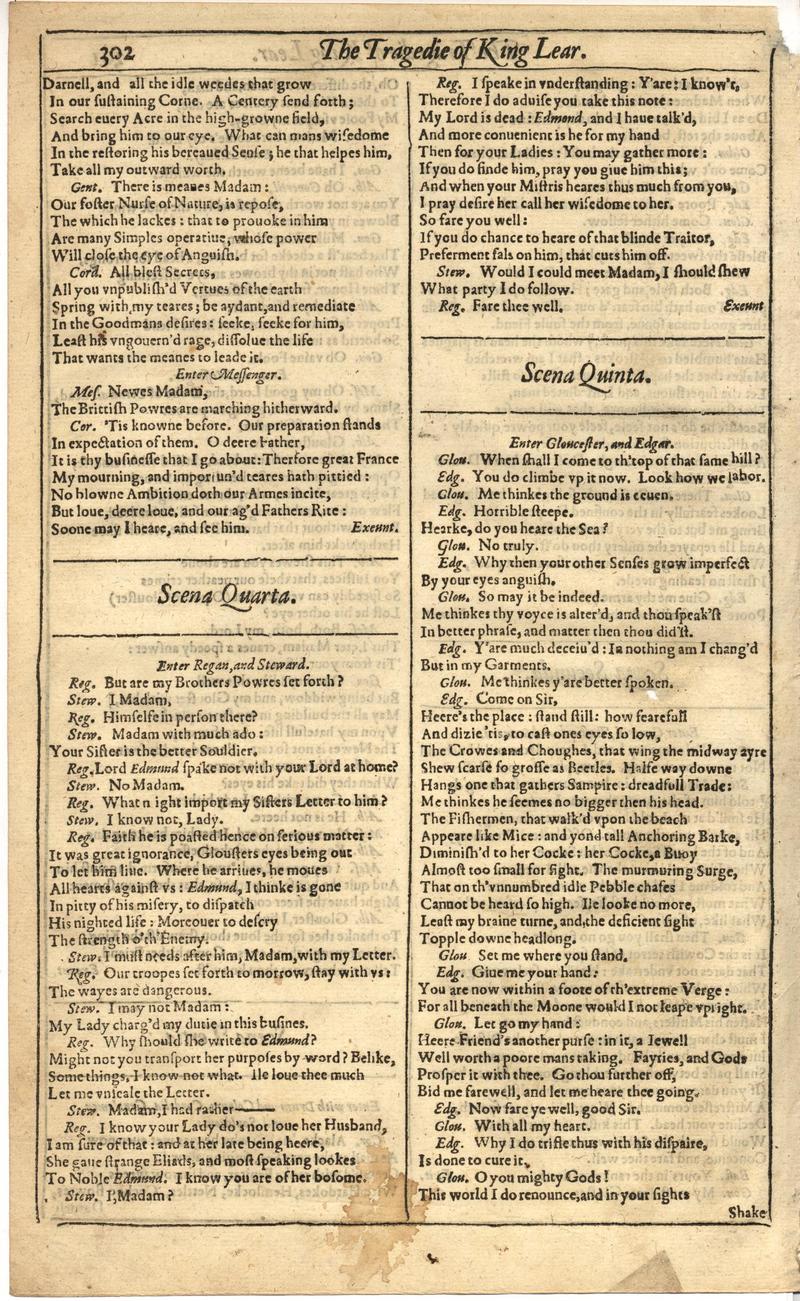 302
The Tragedie of King Lear.
Darnell, and all the idle weedes that grow
In our ſuſtaining Corne. A Centery ſend forth;
Search euery Acre in the high-growne field,
And bring him to our eye. What can mans wiſedome
In the reſtoring his bereaued Senſe; he that helpes him,
Take all my outward worth.
Gent. There is meanes Madam:
Our foſter Nurſe of Nature, is repoſe,
The which he lackes: that to prouoke in him
Are many Simples operatiue, whoſe power
Will cloſe the eye of Anguiſh.
Cord. All bleſt Secrets,
All you vnpubliſh'd Vertues of the earth
Spring with my teares; be aydant, and remediate
In the Goodmans deſires: ſeeke, ſeeke for him,
Leaſt his vngouern'd rage, diſſolue the life
That wants the meanes to leade it.
Enter Meſſenger.
Meſ. Newes Madam,
The Brittiſh Powres are marching hitherward.
Cor. 'Tis knowne before. Our preparation ſtands
In expectation of them. O deere Father,
It is thy buſineſſe that I go about: Therfore great France
My mourning, and importun'd teares hath pittied:
No blowne Ambition doth our Armes incite,
But loue, deere loue, and our ag'd Fathers Rite:
Soone may I heare, and ſee him. Exeunt.
Scena Quarta.
Enter Regan, and Steward.
Reg. But are my Brothers Powres ſet forth?
Stew. I Madam,
Reg. Himſelfe in perſon there?
Stew. Madam with much ado:
Your Siſter is the better Souldier.
Reg. Lord Edmund ſpake not with your Lord at home?
Stew. No Madam.
Reg. What night import my Siſters Letter to him?
Stew. I know not, Lady.
Reg. Faith he is poaſted hence on ſerious matter:
It was great ignorance, Glouſters eyes being out
To let him liue. Where he arriues, he moues
All hearts againſt vs: Edmund, I thinke is gone
In pitty of his miſery, to diſpatch
His nighted life: Moreouer to deſcry
The ſtrength o'th'Enemy.
Stew. I muſt needs after him, Madam, with my Letter.
Reg. Our troopes ſet forth to morrow, ſtay with vs:
The wayes are dangerous.
Stew. I may not Madam:
My Lady charg'd my dutie in this buſines.
Reg. Why ſhould ſhe write to Edmund?
Might not you tranſport her purpoſes by word? Belike,
Some things, I know not what. Ile loue thee much
Let me vnſeale the Letter.
Stew. Madam, I had rather——
Reg. I know your Lady do's not loue her Husband,
I am ſure of that: and at her late being heere,
She gaue ſtrange Eliads, and moſt ſpeaking lookes
To Noble Edmund. I know you are of her boſome.
Stew. I, Madam?
Reg. I ſpeake in vnderſtanding: Y'are: I know't,
Therefore I do aduiſe you take this note:
My Lord is dead: Edmond, and I haue talk'd,
And more conuenient is he for my hand
Then for your Ladies: You may gather more:
If you do finde him, pray you giue him this;
And when your Miſtris heares thus much from you,
I pray deſire her call her wiſedome to her.
So fare you well:
If you do chance to heare of that blinde Traitor,
Preferment fals on him, that cuts him off.
Stew. Would I could meet Madam, I ſhould ſhew
What party I do follow.
Reg. Fare thee well. Exeunt
Scena Quinta.
Enter Glouceſter, and Edgar.
Glou. When ſhall I come to th'top of that ſame hill?
Edg. You do climbe vp it now. Look how we labor.
Glou. Me thinkes the ground is eeuen.
Edg. Horrible ſteepe.
Hearke, do you heare the Sea?
Glou. No truly.
Edg. Why then your other Senſes grow imperfect
By your eyes anguiſh.
Glou. So may it be indeed.
Me thinkes thy voyce is alter'd, and thou ſpeak'ſt
In better phraſe, and matter then thou did'ſt.
Edg. Y'are much deceiu'd: In nothing am I chang'd
But in my Garments.
Glou. Me thinkes y'are better ſpoken.
Edg. Come on Sir,
Heere's the place: ſtand ſtill: how fearefull
And dizie 'tis, to caſt ones eyes ſo low,
The Crowes and Choughes, that wing the midway ayre
Shew ſcarſe ſo groſſe as Beetles. Halfe way downe
Hangs one that gathers Sampire: dreadfull Trade:
Me thinkes he ſeemes no bigger then his head.
The Fiſhermen, that walk'd vpon the beach
Appeare like Mice: and yond tall Anchoring Barke,
Diminiſh'd to her Cocke: her Cocke, a Buoy
Almoſt too ſmall for ſight. The murmuring Surge,
That on th'vnnumbred idle Pebble chafes
Cannot be heard ſo high. Ile looke no more,
Leaſt my braine turne, and the deficient ſight
Topple downe headlong.
Glou Set me where you ſtand.
Edg. Giue me your hand:
You are now within a foote of th'extreme Verge:
For all beneath the Moone would I not leape vpright.
Glou. Let go my hand:
Heere Friend's another purſe: in it, a Iewell
Well worth a poore mans taking. Fayries, and Gods
Proſper it with thee. Go thou further off,
Bid me farewell, and let me heare thee going.
Edg. Now fare ye well, good Sir.
Glou. With all my heart.
Edg. Why I do trifle thus with his diſpaire,
Is done to cure it.
Glou. O you mighty Gods!
This world I do renounce, and in your ſights
Shake